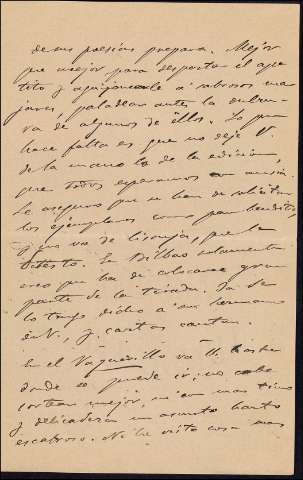 de sus poesías prepara. Mejor
que mejor para despertar el ape-
tito y aguijonearle á sabrosos man-
jares paladear antes la dulzu-
ra de algunos de ellos. Lo que
hace falta es que no deje V.
de la mano lo de la edición,
que todos esperamos con ansia.
Le aseguro que se han de solicitar
los ejemplares como pan bendito,
y no va de lisonja, que la
detesto. En Bilbao solamente
creo que ha de colocarse gran
parte de la tirada. Ya se
lo tengo dicho á su hermano
de V., y cartas cantan.
En el Vaquerillo va V. hasta
donde se puede ir; no cabe
sortear mejor, ni con más tino
y delicadeza un asunto harto
escabroso. No he visto cosa más